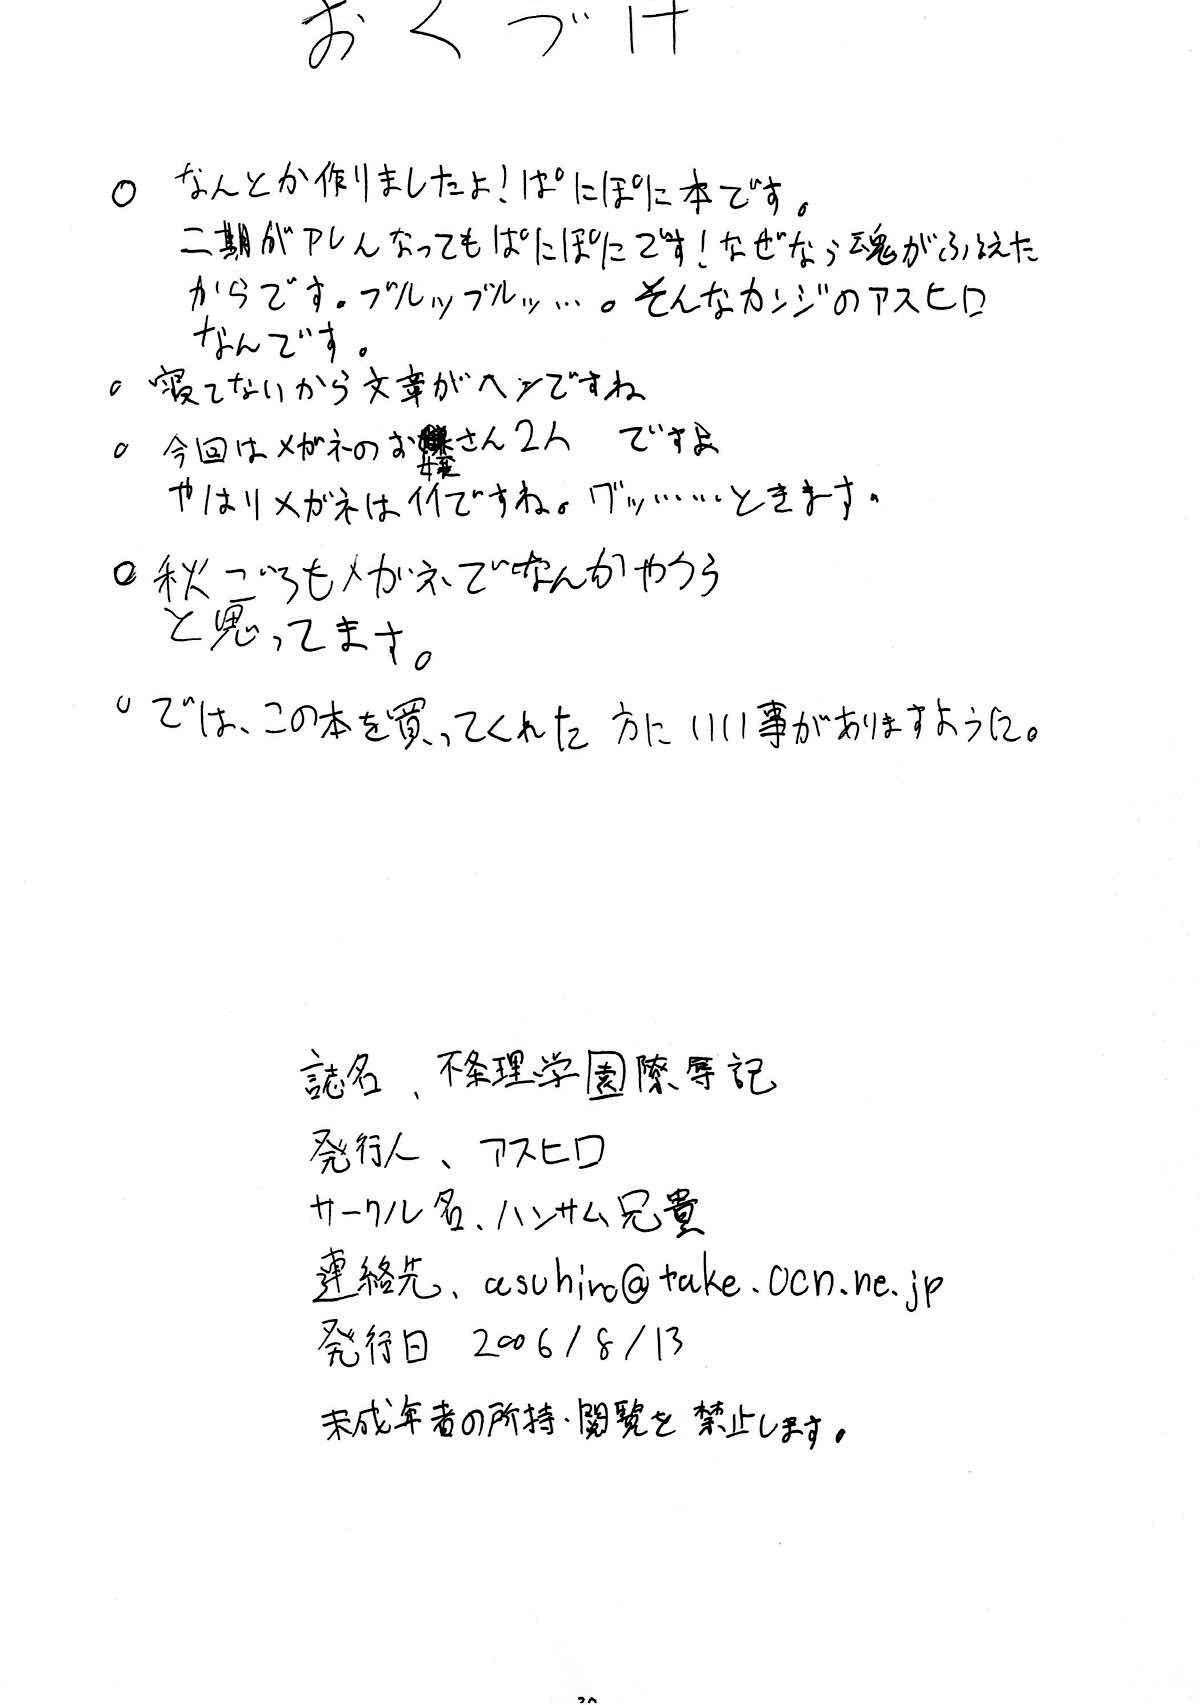 おくづけ
○ なんとか作りましたよ！ぱにぽに本です。
二期がアレんなってもぱにぽにです！なぜなら魂がふるえた
からです。ブルッブルッ…。そんなカンジのアスヒロ
なんです。
○ 寝てないから文章がヘンですね
○ 今回はメガネのお嬢さん2人 ですよ
やはりメガネはイイですね。グッ……ときます。
○ 秋ごろもメガネでなんかやろう
と思ってます。
○ では、この本を買ってくれた方にいい事がありますように。
誌名、不条理学園陵辱記
発行人、アスヒロ
サークル名、ハンサム兄貴
連絡先、asuhiro@take.ocn.ne.jp
発行日 2006/8/13
未成年者の所持・閲覧を禁止します。